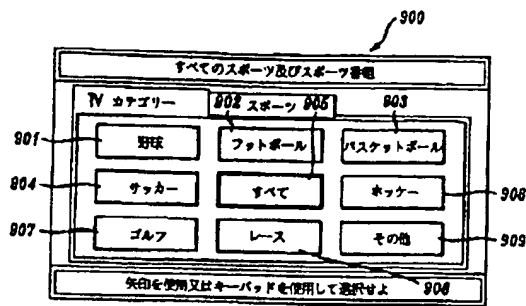 900
すべてのスポーツ及びスポーツ番組
TV カテゴリー 902 スポーツ 905 903
901 野球 フットボール バスケットボール
904 サッカー すべて ホッケー 906
907 ゴルフ レース その他 909
矢印を使用又はキーパッドを使用して選択せよ 908